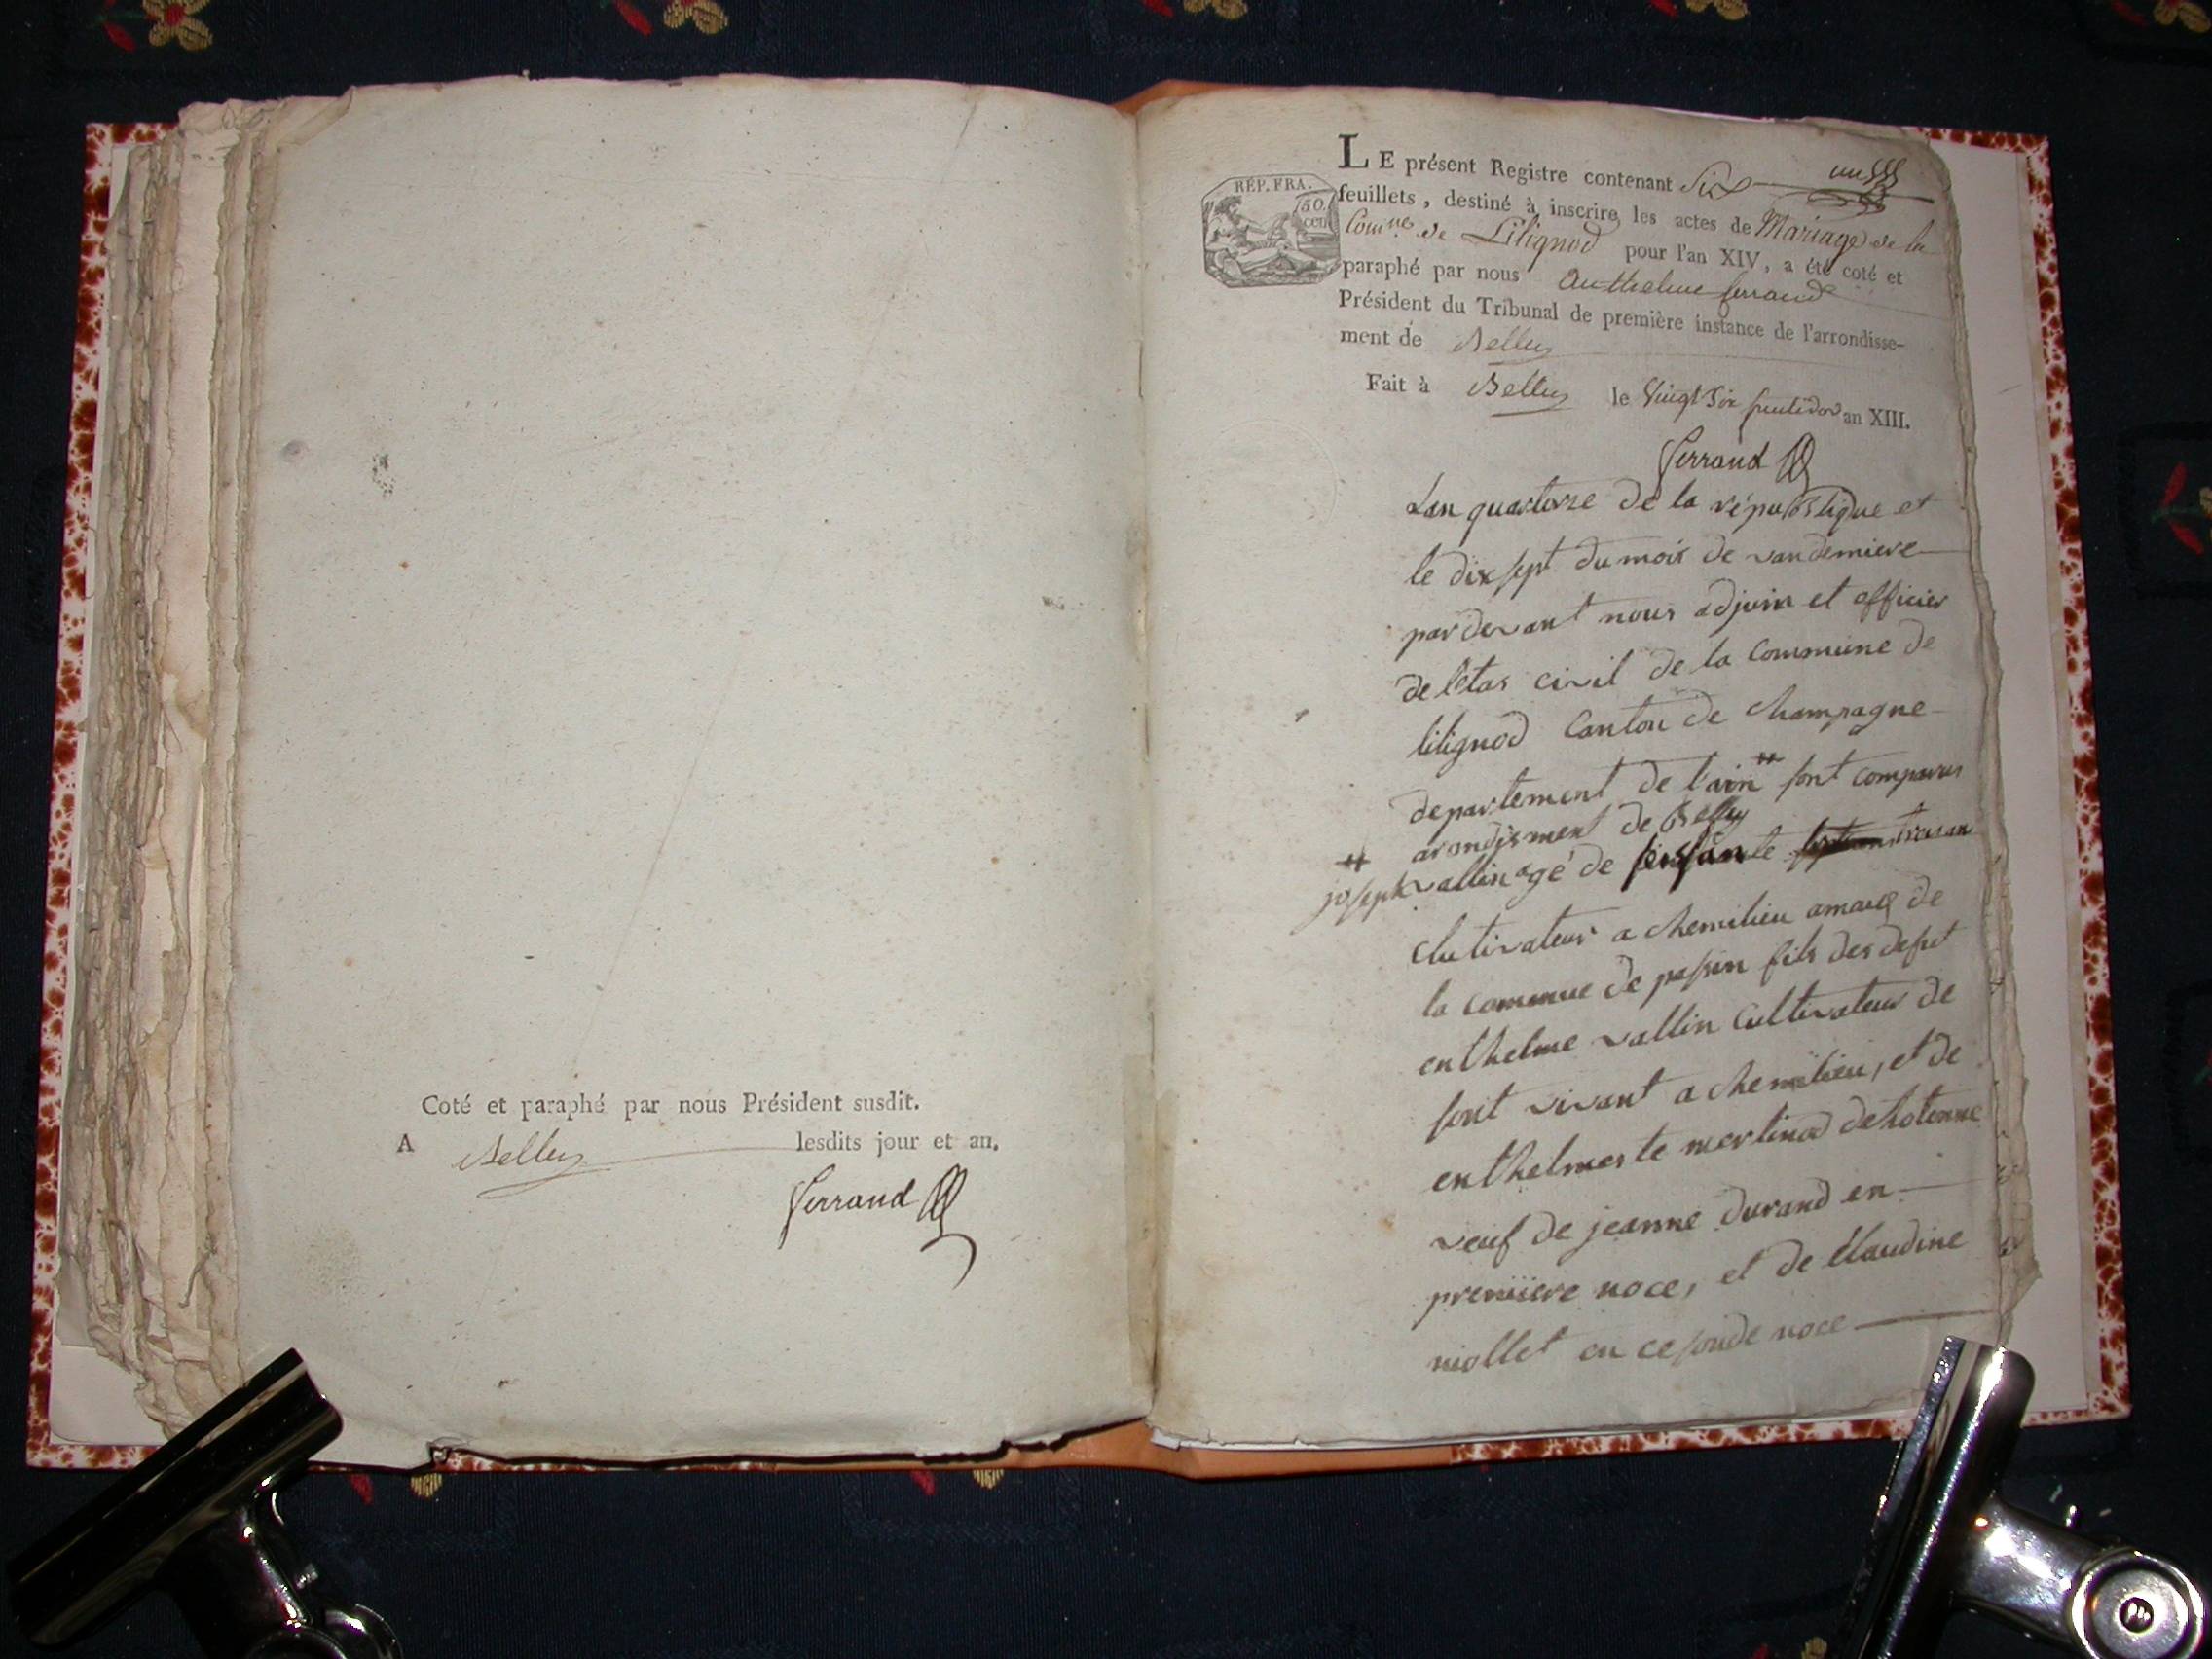 Coté et paraphé par nous Président susdit.
A Belley lesdits jour et an.
Ferrand
un
LE présent Registre contenant Six
feuillets, destiné à inscrire les actes de Mariage de la
Comne de Lilignod pour l'an XIV, a été coté et
paraphé par nous Anthelme ferrand
Président du Tribunal de première instance de l'arrondisse-
ment de Belley
Fait à Belley le Vingt Six fructidor an XIII.
RÉP. FRA.
50.
cen
Ferrand
Lan quatorze de la république et
le dix sept du mois de vandemiere
par devant nous adjoin et officier
de letas civil de la commune de
lilignod Canton de champagne
departement de l'ain # sont comparus
# arondisment de Belley
joseph vallin agé de soissante trois an
clutivateur a chemilieu amaux de
la commue de passin fils des defut
enthelme vallin Cultivateur de
sont vivant a chemilieu, et de
enthelmeste martinod de hotonne
veuf de jeanne durand en
premiere noce, et de Claudine
niollet en cesonde noce